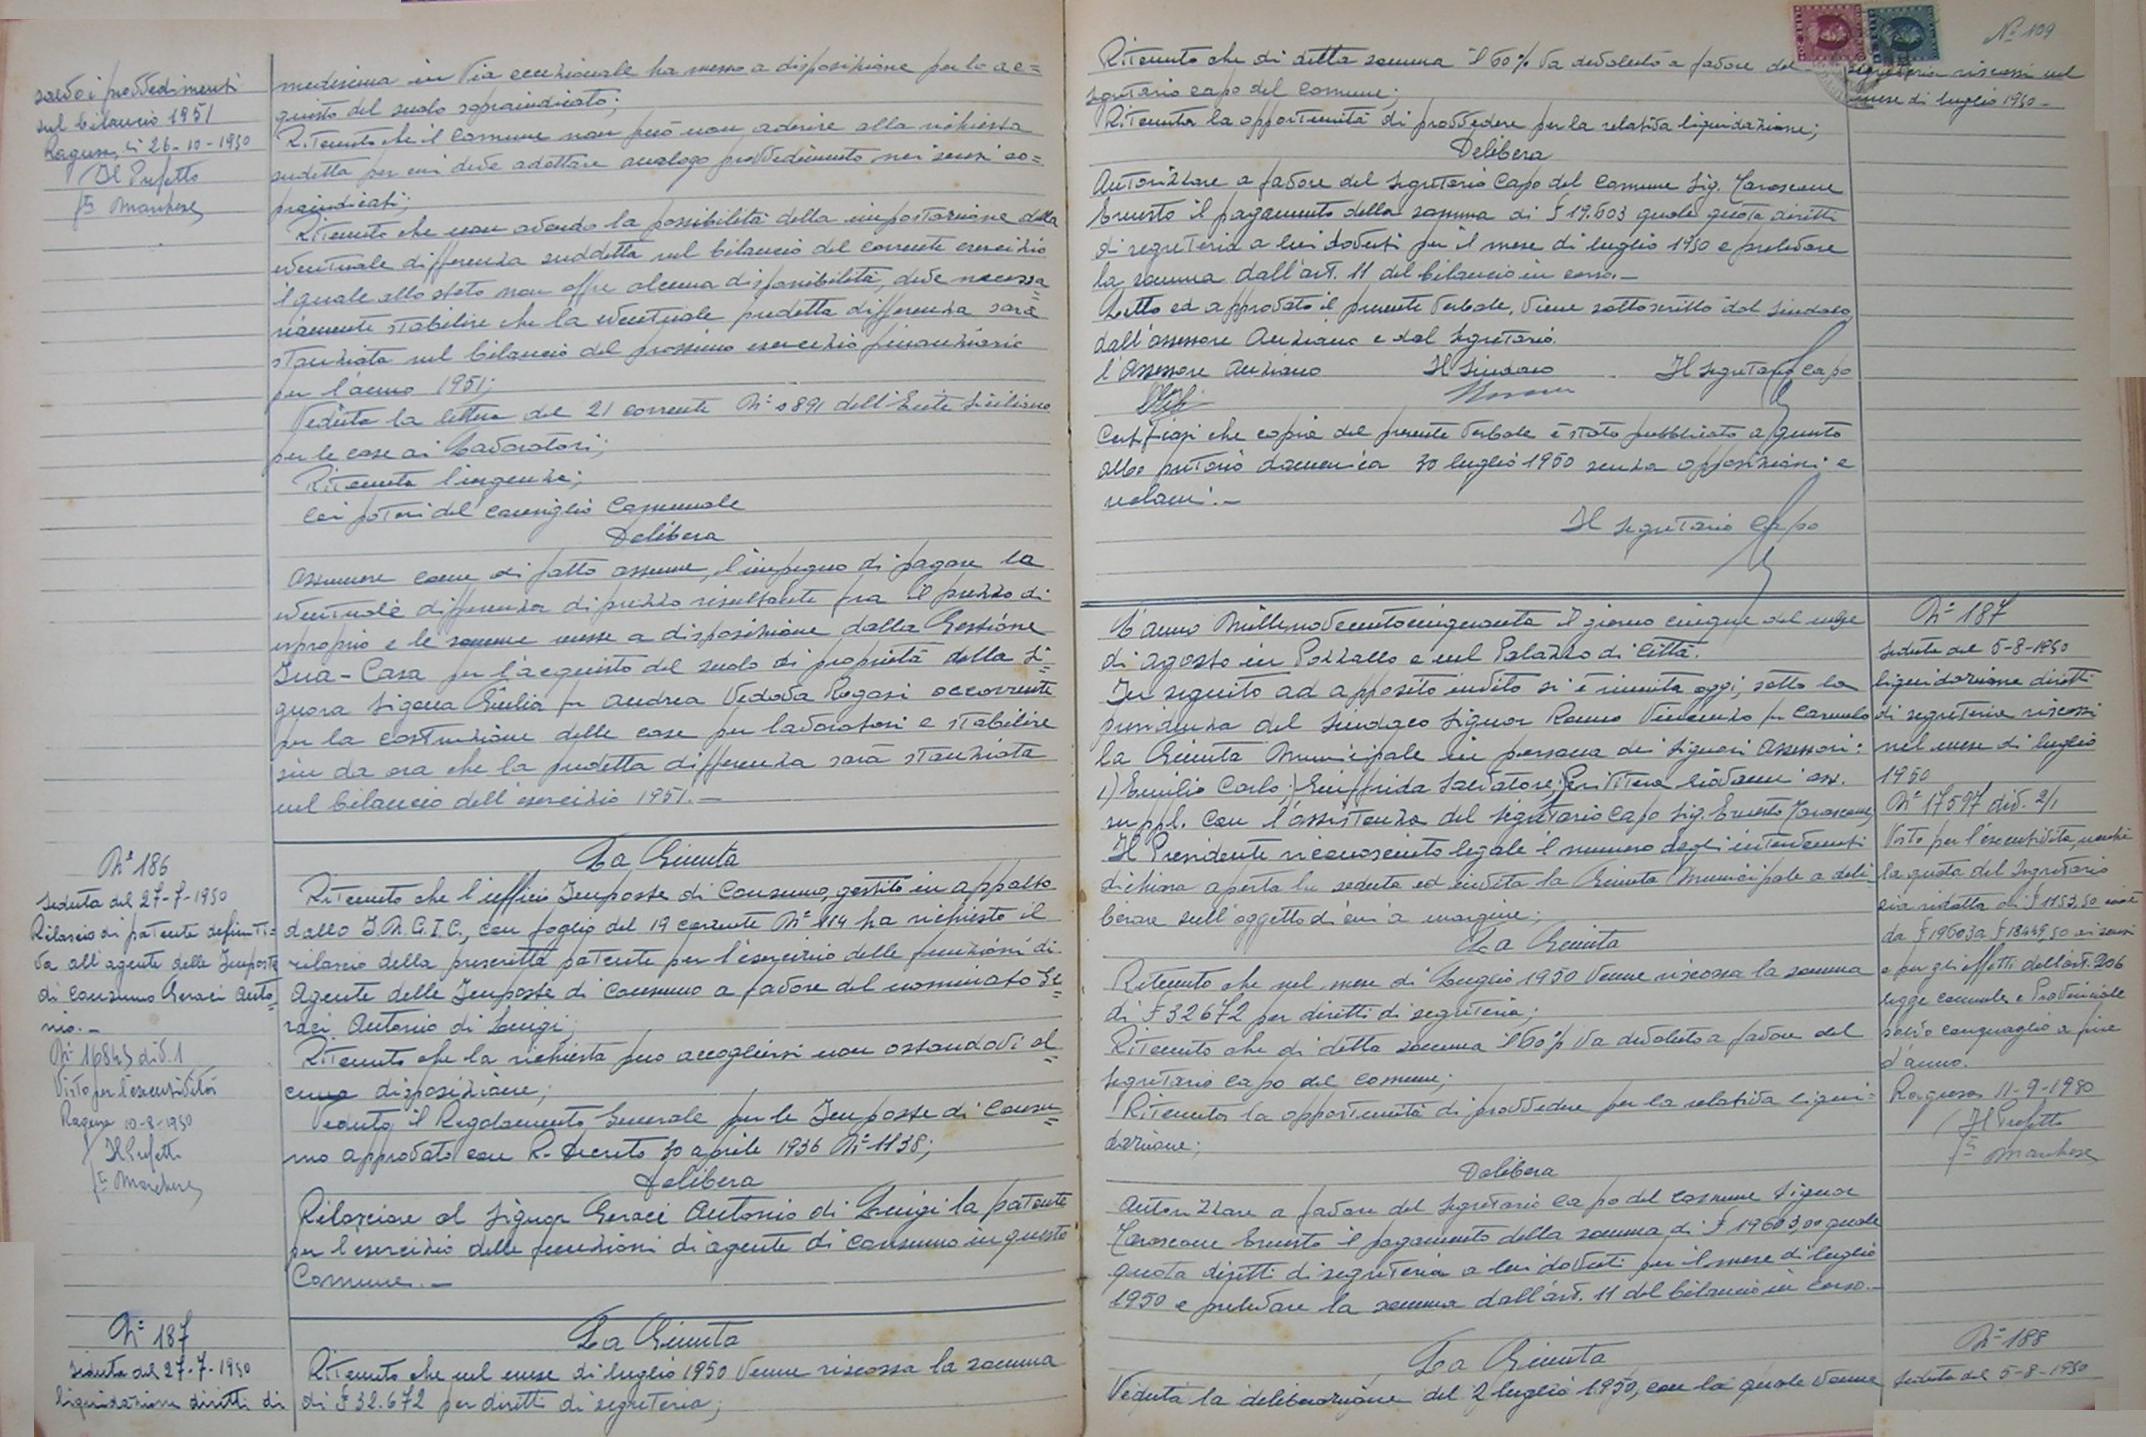 salvo i provvedimenti
sul bilancio 1951
Ragusa, li 26-10-1950
Il Prefetto
Fto Marchese
medesima in via eccezionale ha messo a disposizione per lo ac=
quisto del suolo sopraindicato;
Ritenuto che il Comune non può non aderire alla richiesta
sudetta per cui deve adottare analogo provvedimento nei sensi so=
praindicati;
Ritenuto che non avendo la possibilità della impostazione della
eventuale differenza suddetta nel bilancio del corrente esercizio
il quale allo stato non offre alcuna disponibilità, deve necessa=
riamente stabilire che la eventuale predetta differenza sarà
stanziata nel bilancio del prossimo esercizio finanziario
per l'anno 1951;
Veduta la lettera del 21 corrente N° 0891 dell'Ente Siciliano
per le case ai Lavoratori;
Ritenuta l'urgenza;
Coi poteri del Consiglio Comunale
Delibera
Assumere come di fatto assume, l'impegno di pagare la
eventuale differenza di prezzo risultante fra il prezzo di
esproprio e le somme messe a disposizione dalla Gestione
Ina-Casa per l'acquisto del suolo di proprietà della Si=
gnora Sigona Giulia fu Andrea Vedova Rogasi occorrente
per la costruzione delle case per lavoratori e stabilire
sin da ora che la predetta differenza sarà stanziata
nel bilancio dell'esercizio 1951.-
N° 186
Seduta del 27-7-1950
Rilascio di patente definiti=
va all'agente delle Imposte
di Consumo Geraci Anto=
nio.-
N° 16843 div. 1
Visto per l'esecutività
Ragusa 10-8-1950
Il Prefetto
Fto Marchese
La Giunta
Ritenuto che l'ufficio Imposte di Consumo, gestito in appalto
dallo I.N.G.I.C., con foglio del 19 corrente N° 114 ha richiesto il
rilascio della prescritta patente per l'esercizio delle funzioni di
Agente delle Imposte di Consumo a favore del nominato Ge=
raci Antonio di Luigi;
Ritenuto che la richiesta può accogliersi non ostandovi al=
cuna disposizione;
Veduto il Regolamento Generale per le Imposte di Consu=
mo approvato con R. Decreto 30 aprile 1936 N° 1138;
Delibera
Rilasciare al Signor Geraci Antonio di Luigi la patente
per l'esercizio delle funzioni di agente di Consumo in questo
Comune.-
N° 187
Seduta del 27-7-1950
liquidazione diritti di
La Giunta
Ritenuto che nel mese di luglio 1950 venne riscossa la somma
di £ 32.672 per diritti di segreteria;
N° 109
segreteria riscossi nel
mese di luglio 1950-
Ritenuto che di detta somma il 60% va devoluto a favore del
segretario capo del Comune;
Ritenuta la opportunità di provvedere per la relativa liquidazione;
Delibera
Autorizzare a favore del Segretario Capo del Comune Sig. Tarascone
Ernesto il pagamento della somma di £ 19.603 quale quota diritti
di segreteria a lui dovuti per il mese di luglio 1950 e prelevare
la somma dall'art. 11 del bilancio in corso.-
Letto ed approvato il presente verbale, viene sottoscritto dal Sindaco
dall'assessore Anziano e dal Segretario.
L'Assessore Anziano Il Sindaco Il Segretario Capo
Certificasi che copia del presente verbale è stato pubblicato a questo
albo pretorio domenica 30 luglio 1950 senza opposizioni e
reclami.-
Il Segretario Capo
L'anno Millenovecentocinquanta il giorno cinque del mese
di agosto in Pozzallo e nel Palazzo di Città.
In seguito ad apposito invito si è riunita oggi, sotto la
presidenza del Sindaco Signor Vincenzo fu Carmelo
la Giunta Municipale in persona dei Signori Assessori:
1) Emilio Carlo; Giuffrida Salvatore; Giovanni ass.
suppl. con l'assistenza del Segretario Capo Sig. Ernesto Tarascone
Il Presidente riconosciuto legale il numero degli intervenuti
dichiara aperta la seduta ed invita la Giunta Municipale a deli=
berare sull'oggetto di cui a margine;
La Giunta
Ritenuto che nel mese di Luglio 1950 venne riscossa la somma
di £ 32672 per diritti di segreteria;
Ritenuto che di detta somma il 60% va devoluto a favore del
Segretario capo del Comune;
Ritenuta la opportunità di provvedere per la relativa liqui=
dazione;
Delibera
Autorizzare a favore del Segretario Capo del Comune Signor
Tarascone Ernesto il pagamento della somma di £ 19603,00 quale
quota diritti di segreteria a lui dovuti per il mese di luglio
1950 e prelevare la somma dall'art. 11 del bilancio in corso.-
N° 187
Seduta del 5-8-1950
liquidazione diritti
di segreteria riscossi
nel mese di luglio
1950
N° 17597 div. 2/1
Visto per l'esecutività, perchè
la quota del Segretario
sia ridotta di £ 1153,50 cioè
da £ 19603 a £ 18449,50 ai sensi
e per gli effetti dell'art. 206
legge comunale e Provinciale
salvo conguaglio a fine
d'anno.
Ragusa 11-9-1950
Il Prefetto
Fto Marchese
La Giunta
Veduta la deliberazione del 2 luglio 1950, con la quale venne
N° 188
Seduta del 5-8-1950